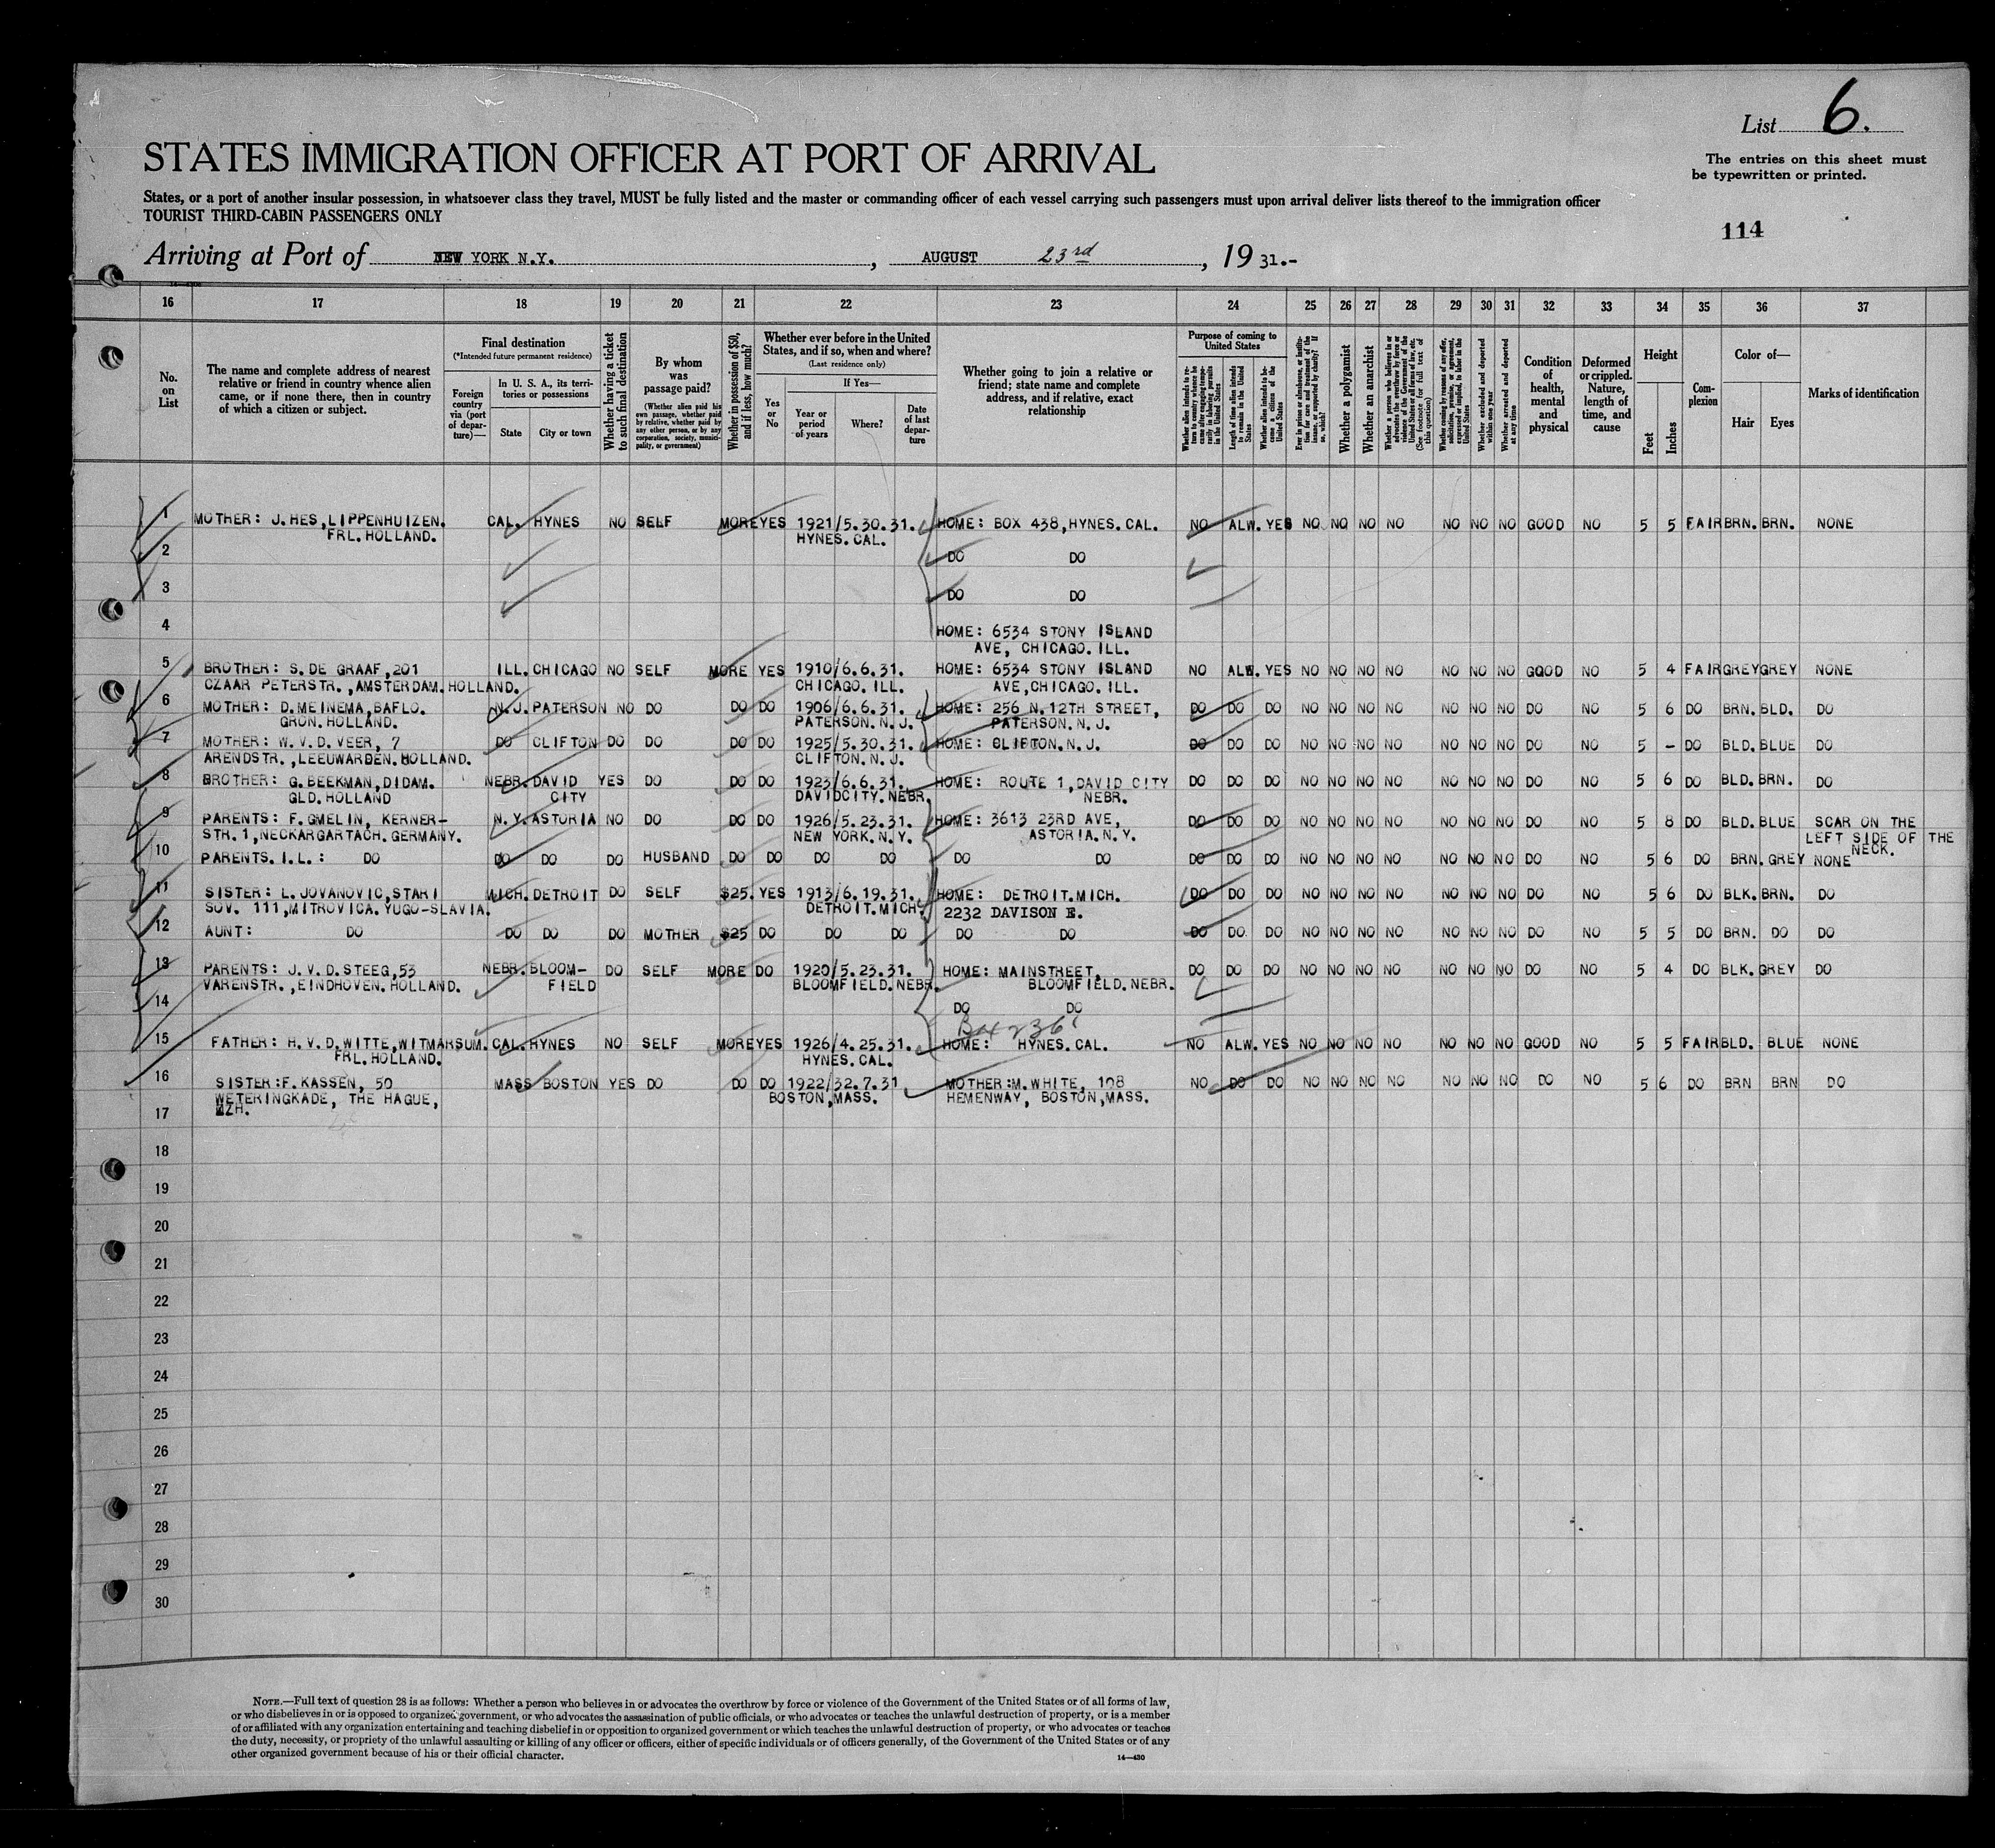 List 6.
STATES IMMIGRATION OFFICER AT PORT OF ARRIVAL
The entries on this sheet must
be typewritten or printed.
States, or a port of another insular possession, in whatsoever class they travel, MUST be fully listed and the master or commanding officer of each vessel carrying such passengers must upon arrival deliver lists thereof to the immigration officer
TOURIST THIRD-CABIN PASSENGERS ONLY
114
Arriving at Port of NEW YORK N.Y. , AUGUST 23rd , 19 31.-
16 17 18 19 20 21 22 23 24 25 26 27 28 29 30 31 32 33 34 35 36 37
No.
on
List
The name and complete address of nearest
relative or friend in country whence alien
came, or if none there, then in country
of which a citizen or subject.
Final destination
(*Intended future permanent residence)
Foreign
country
via (port
of depar-
ture)—
In U. S. A., its terri-
tories or possessions
State City or town
Whether having a ticket
to such final destination
By whom
was
passage paid?
(Whether alien paid his
own passage, whether paid
by relative, whether paid by
any other person, or by any
corporation, society, munici-
pality, or government)
Whether in possession of $50,
and if less, how much?
Whether ever before in the United
States, and if so, when and where?
(Last residence only)
Yes
or
No
If Yes—
Year or
period
of years
Where?
Date
of last
depar-
ture
Whether going to join a relative or
friend; state name and complete
address, and if relative, exact
relationship
Purpose of coming to
United States
Whether alien intends to re-
turn to country whence he
came after engaging tempo-
rarily in laboring pursuits
in the United States
Length of time alien intends
to remain in the United
States
Whether alien intends to be-
come a citizen of the
United States
Ever in prison or almshouse, or institu-
tion for care and treatment of the
insane, or supported by charity? If
so, which?
Whether a polygamist
Whether an anarchist
Whether a person who believes in or
advocates the overthrow by force or
violence of the Government of the
United States or all forms of law, etc.
(See footnote for full text of
this question)
Whether coming by reason of any offer,
solicitation, promise, or agreement,
expressed or implied, to labor in the
United States
Whether excluded and deported
within one year
Whether arrested and deported
at any time
Condition
of
health,
mental
and
physical
Deformed
or crippled.
Nature,
length of
time, and
cause
Height
Feet Inches
Com-
plexion
Color of—
Hair Eyes
Marks of identification
1 MOTHER: J. HES, LIPPENHUIZEN. CAL. HYNES NO SELF MORE YES 1921/5.30.31. HOME: BOX 438, HYNES. CAL. NO ALW. YES NO NO NO NO NO NO NO GOOD NO 5 5 FAIR BRN. BRN. NONE
FRL. HOLLAND. HYNES. CAL.
2 DO DO
3 DO DO
4 HOME: 6534 STONY ISLAND
AVE, CHICAGO. ILL.
5 BROTHER: S. DE GRAAF, 201 ILL. CHICAGO NO SELF MORE YES 1910/6.6.31. HOME: 6534 STONY ISLAND NO ALW. YES NO NO NO NO NO NO NO GOOD NO 5 4 FAIR GREY GREY NONE
CZAAR PETERSTR., AMSTERDAM. HOLLAND. CHICAGO. ILL. AVE, CHICAGO. ILL.
6 MOTHER: D. MEINEMA, BAFLO. N.J. PATERSON NO DO DO DO 1906/6.6.31. HOME: 256 N. 12TH STREET, DO DO DO NO NO NO NO NO NO NO DO NO 5 6 DO BRN. BLD. DO
GRON. HOLLAND. PATERSON. N. J. PATERSON. N. J.
7 MOTHER: W. V. D. VEER, 7 DO CLIFTON DO DO DO DO 1925/5.30.31. HOME: CLIFTON. N. J. DO DO DO NO NO NO NO NO NO NO DO NO 5 - DO BLD. BLUE DO
ARENDSTR., LEEUWARDEN. HOLLAND. CLIFTON. N. J.
8 BROTHER: G. BEEKMAN, DIDAM. NEBR. DAVID YES DO DO DO 1923/6.6.31. HOME: ROUTE 1, DAVID CITY DO DO DO NO NO NO NO NO NO NO DO NO 5 6 DO BLD. BRN. DO
GLD. HOLLAND CITY DAVIDCITY. NEBR. NEBR.
9 PARENTS: F. GMELIN, KERNER- N.Y. ASTORIA NO DO DO DO 1926/5.23.31. HOME: 3613 23RD AVE, DO DO DO NO NO NO NO NO NO NO DO NO 5 8 DO BLD. BLUE SCAR ON THE
STR. 1, NECKARGARTACH. GERMANY. NEW YORK. N. Y. ASTORIA. N. Y. LEFT SIDE OF THE
NECK.
10 PARENTS. I.L.: DO DO DO DO HUSBAND DO DO DO DO DO DO DO DO DO NO NO NO NO NO NO NO DO NO 5 6 DO BRN. GREY NONE
11 SISTER: L. JOVANOVIC, STARI MICH. DETROIT DO SELF $25. YES 1913/6.19.31. HOME: DETROIT. MICH. DO DO DO NO NO NO NO NO NO NO DO NO 5 6 DO BLK. BRN. DO
SOV. 111, MITROVICA. YUGO-SLAVIA. DETROIT. MICH. 2232 DAVISON E.
12 AUNT: DO DO DO DO MOTHER $25 DO DO DO DO DO DO DO DO NO NO NO NO NO NO NO DO NO 5 5 DO BRN. DO DO
13 PARENTS: J. V. D. STEEG, 53 NEBR. BLOOM- DO SELF MORE DO 1920/5.23.31. HOME: MAINSTREET, DO DO DO NO NO NO NO NO NO NO DO NO 5 4 DO BLK. GREY DO
VARENSTR., EINDHOVEN. HOLLAND. FIELD BLOOMFIELD. NEBR. BLOOMFIELD. NEBR.
14 DO DO
Box 236
15 FATHER: H. V. D. WITTE, WITMARSUM. CAL. HYNES NO SELF MORE YES 1926/4.25.31. HOME: HYNES. CAL. NO ALW. YES NO NO NO NO NO NO NO GOOD NO 5 5 FAIR BLD. BLUE NONE
FRL. HOLLAND. HYNES. CAL.
16 SISTER: F. KASSEN, 50 MASS BOSTON YES DO DO DO 1922/32.7.31 MOTHER: M. WHITE, 108 NO DO DO NO NO NO NO NO NO NO DO NO 5 6 DO BRN BRN DO
WETERINGKADE, THE HAGUE, BOSTON, MASS. HEMENWAY, BOSTON, MASS.
17 ZH.
18
19
20
21
22
23
24
25
26
27
28
29
30
NOTE.—Full text of question 28 is as follows: Whether a person who believes in or advocates the overthrow by force or violence of the Government of the United States or of all forms of law,
or who disbelieves in or is opposed to organized government, or who advocates the assassination of public officials, or who advocates or teaches the unlawful destruction of property, or is a member
of or affiliated with any organization entertaining and teaching disbelief in or opposition to organized government or which teaches the unlawful destruction of property, or who advocates or teaches
the duty, necessity, or propriety of the unlawful assaulting or killing of any officer or officers, either of specific individuals or of officers generally, of the Government of the United States or of any
other organized government because of his or their official character.
14—430